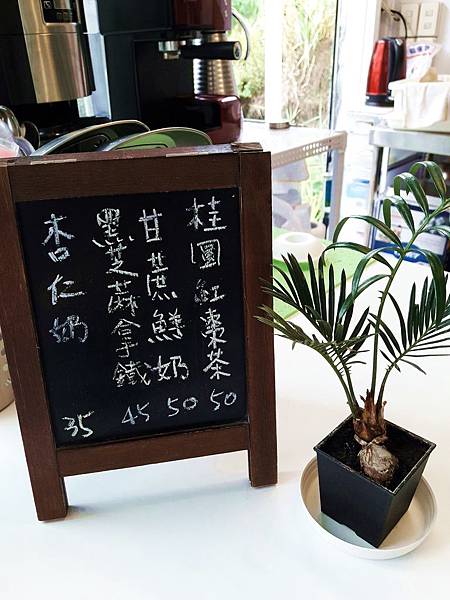 桂圓紅棗茶 50
甘蔗鮮奶 50
黑芝麻拿鐵 45
杏仁奶 35